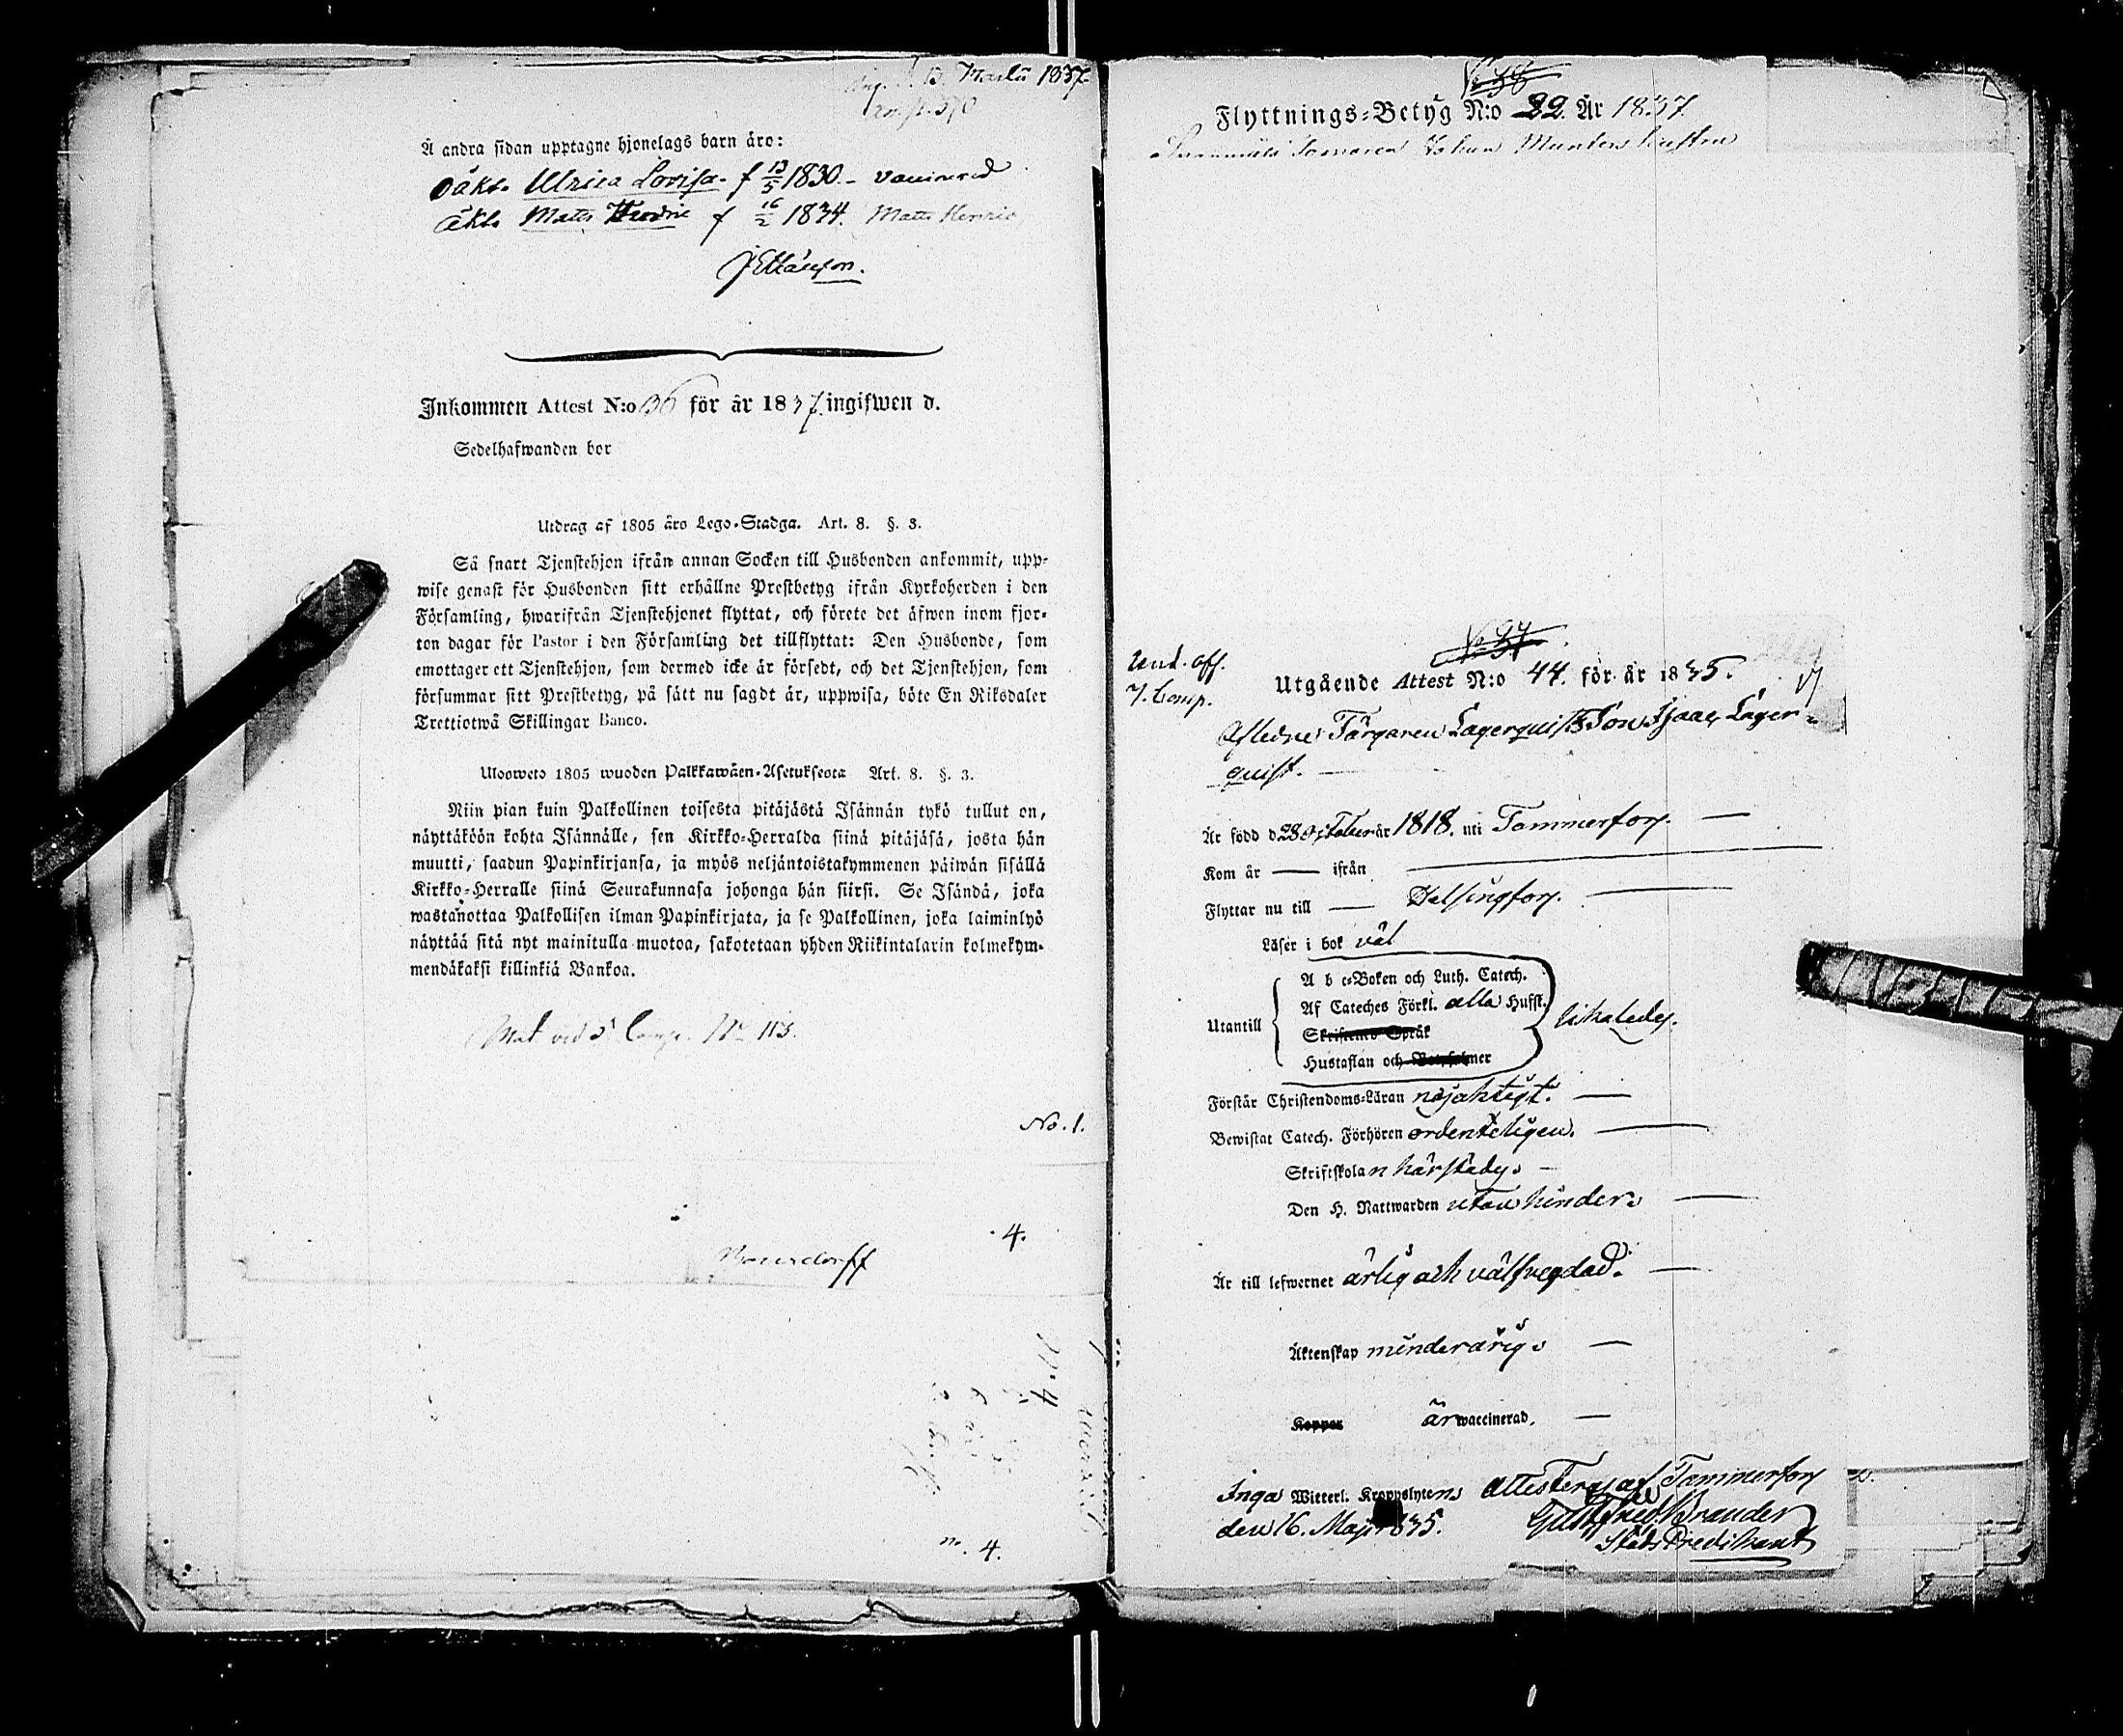 13. Martii 1837
Å andra sidan upptagne hjonelags barn äro:
oäkt. Ulrica Lovisa. f 13/5 1830. - vaccinerad
Äkt. Matts f 16/2 1834. Matts Henric
Inkommen Attest N:o 36 för år 1837. ingifwen d.
Sedelhafwanden bor
Utdrag af 1805 års Lego-Stadga. Art. 8. §. 3.
Så snart Tjenstehjon ifrån annan Socken till Husbonden ankommit, upp-
wise genast för Husbonden sitt erhållne Prestbetyg ifrån Kyrkoherden i den
Församling, hwarifrån Tjenstehjonet flyttat, och förete det äfwen inom fjor-
ton dagar för Pastor i den Församling det tillflyttat: Den Husbonde, som
emottager ett Tjenstehjon, som dermed icke är försedt, och det Tjenstehjon, som
försummar sitt Prestbetyg, på sätt nu sagdt är, uppwisa, böte En Riksdaler
Trettiotwå Skillingar Banco.
Ulosweto 1805 wuoden Palkkawäen-Asetuksesta Art. 8. §. 3.
Niin pian kuin Palkollinen toisesta pitäjästä Isännän tykö tullut on,
näyttäköön kohta Isännälle, sen Kirkko-Herralda siinä pitäjäsä, josta hän
muutti, saadun Papinkirjansa, ja myös neljäntoistakymmenen päiwän sisällä
Kirkko-Herralle siinä Seurakunnasa johonga hän siirsi. Se Isändä, joka
wastanottaa Palkollisen ilman Papinkirjata, ja se Palkollinen, joka laiminlyö
näyttää sitä nyt mainitulla muotoa, sakotetaan yhden Riikintalarin kolmekym-
mendäkaksi killinkiä Bankoa.
No 113.
No. 1.
4.
4.
No 36
Flyttnings-Betyg N:o 22. År 1837.
Johan Muntens hustru
Und. off.
7. Comp.
Utgående Attest N:o 44. för år 1835.
Afledne Färgaren Lagerquists Son Isaac Lager-
quist.
Är född d. 28 October år 1818. uti Tammerfors.
Kom år — ifrån
Flyttar nu till — Helsingfors.
Läser i bok väl
A b c-Boken och Luth. Catech.
Af Cateches Förkl. alla Hufst.
Utantill
Skriftenes Språk
Hustaflan och Botpsalmer
likaledes.
Förstår Christendoms-Läran nöjaktigt.
Bewistat Catech. Förhören ordenteligen.
Skriftskolan härstädes
Den H. Nattwarden utan hinder.
Är till lefwernet ärlig och välfregdad.
Äktenskap minderårig.
Koppor är waccinerad.
Inga Witterl. Kroppslytens Attesteras af Tammerfors
den 16. Maji 1835. Gust. Fred. Brander
Stads Predikant